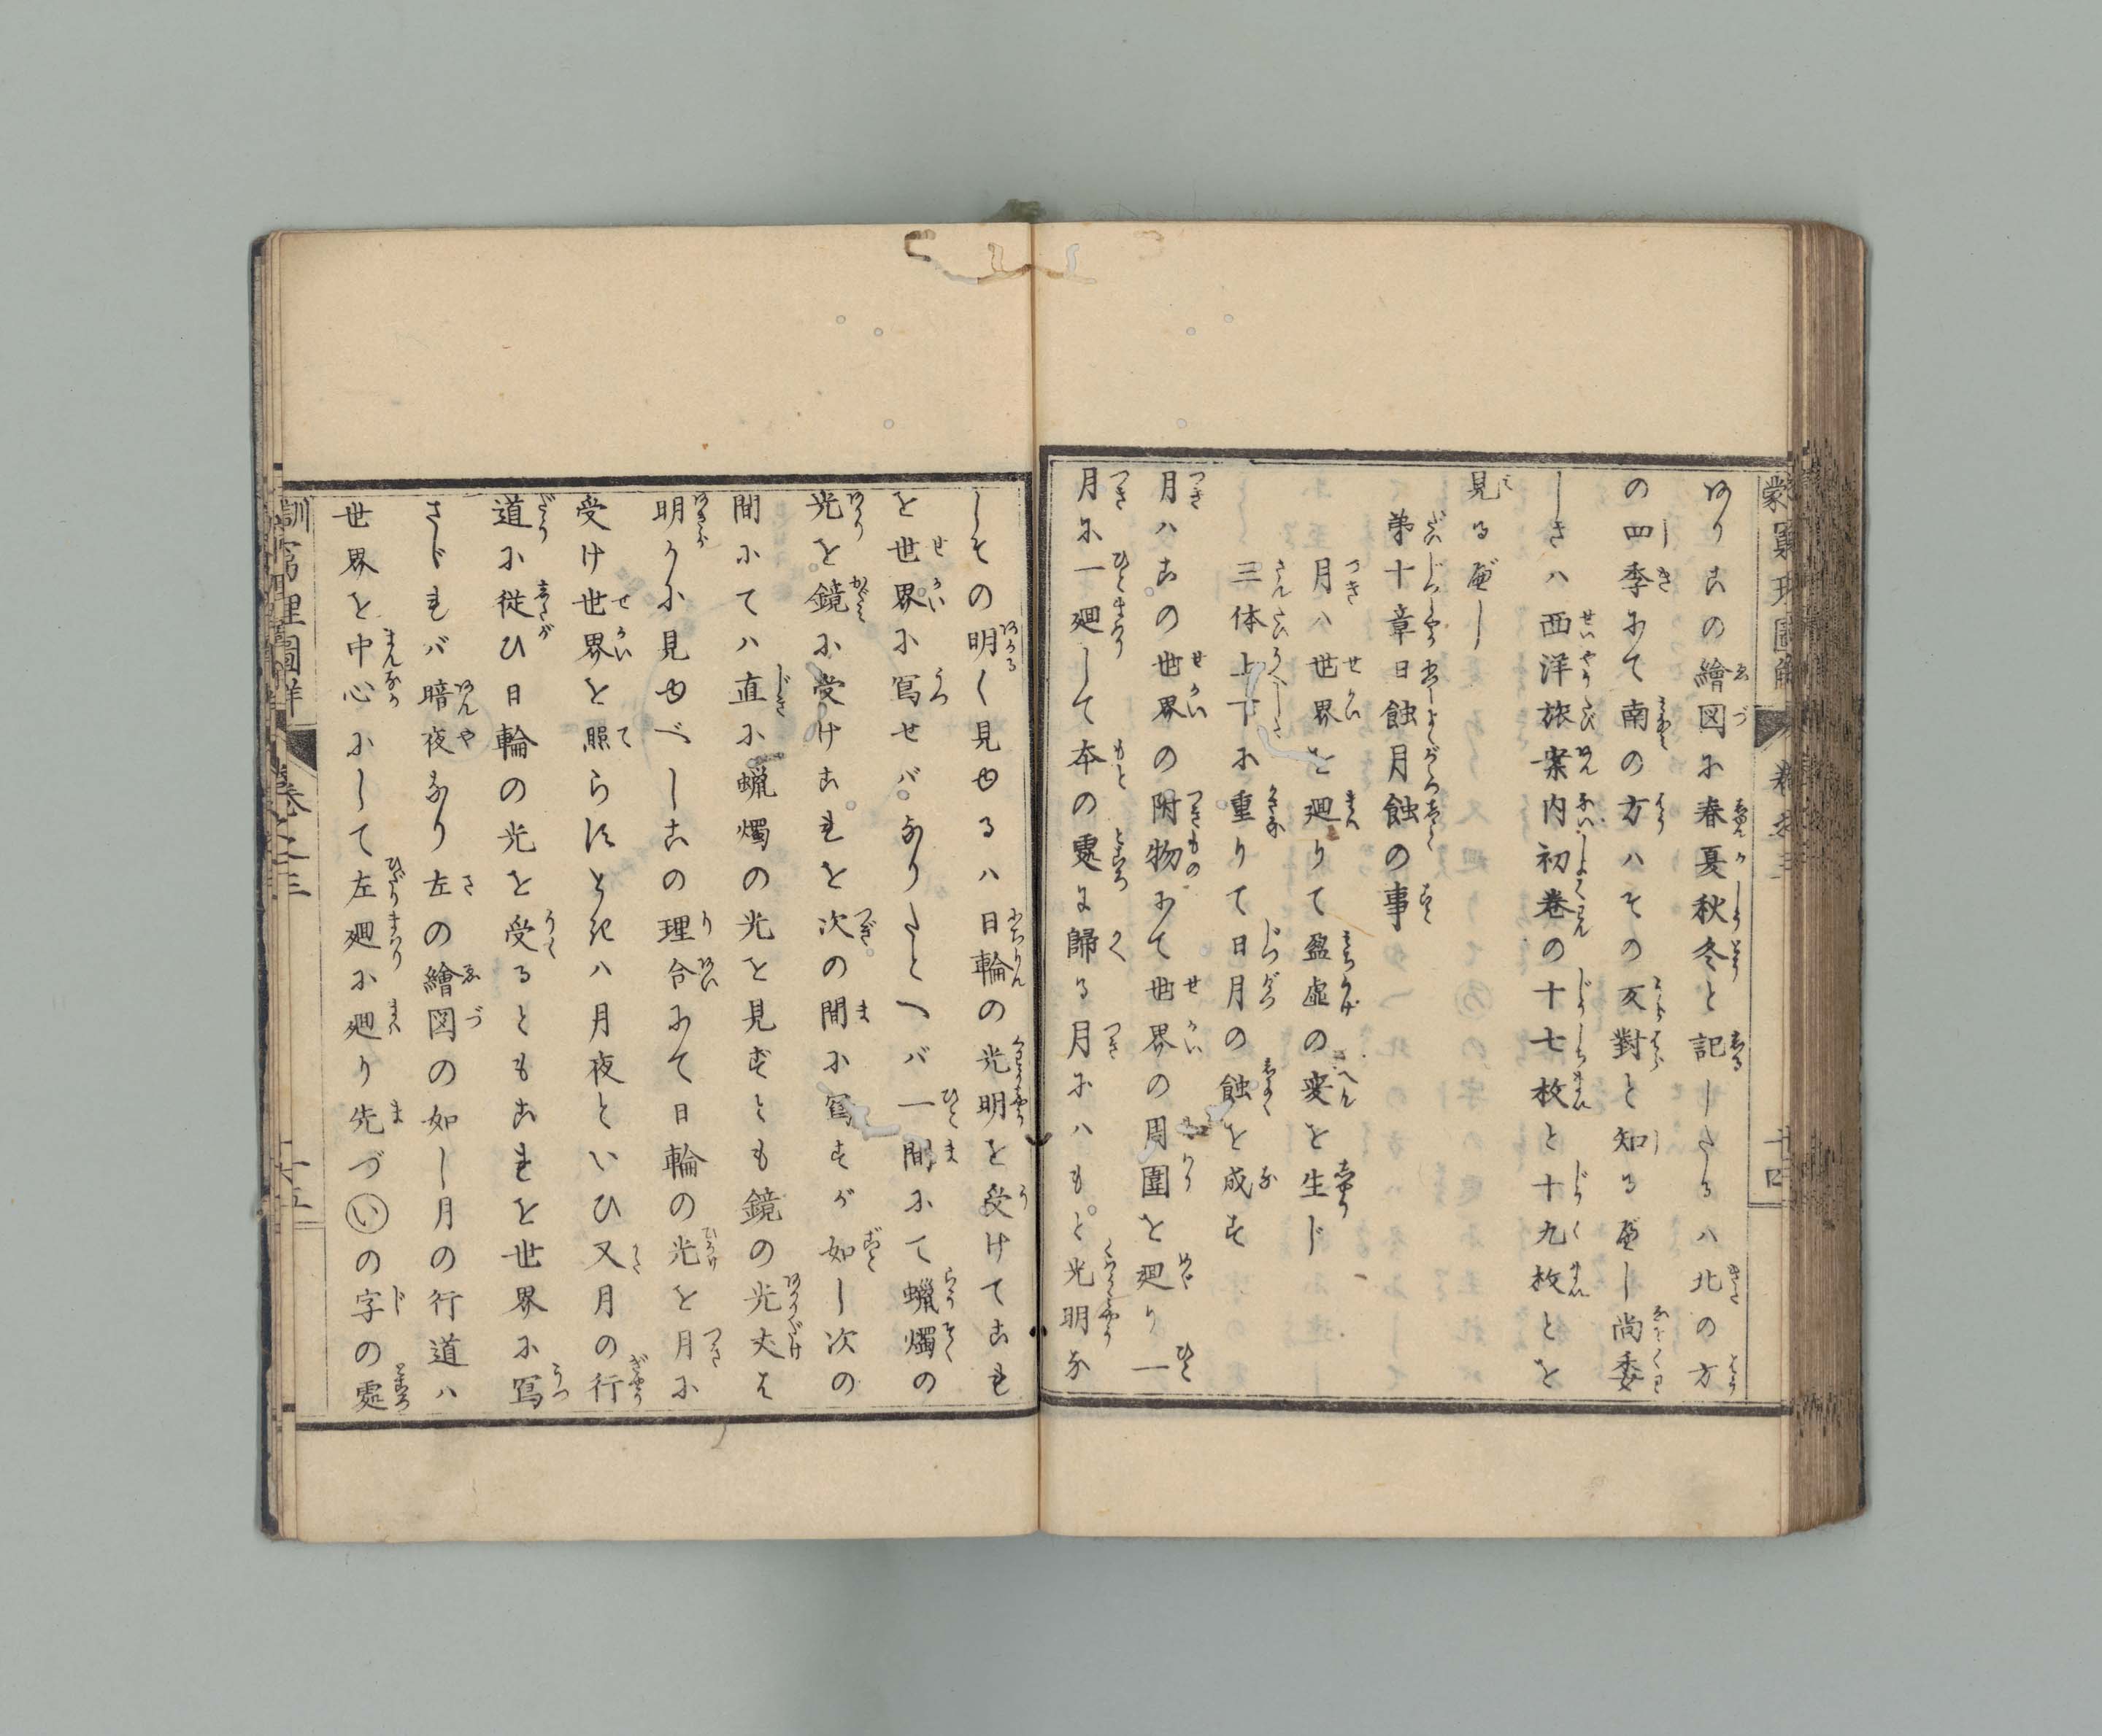 ありこの繪図に春夏秋冬と記したるハ北の方
の四季にて南の方ハその反對と知るべし尚委
しきハ西洋旅案内初巻の十七枚と十九枚とを
見るべし
第十章日蝕月蝕の事
月ハ世界を廻りて盈虚の変を生じ
三体上下に重りて日月の蝕を成す
月ハこの世界の附物にて世界の周圍を廻り一
月に一廻して本の處に歸る月にハもと光明な
しその明く見ゆるハ日輪の光明を受けてこれ
を世界に寫せバなりたとへバ一間にて蠟燭の
光を鏡に受けこれを次の間に寫すが如し次の
間にてハ直に蠟燭の光を見ずとも鏡の光丈は
明かに見ゆべしこの理合にて日輪の光を月に
受け世界を照らすときハ月夜といひ又月の行
道に從ひ日輪の光を受るともこれを世界に寫
さゞれバ暗夜なり左の繪図の如し月の行道ハ
世界を中心にして左廻に廻り先づ㋑の字の處
訓蒙窮理圖解 卷之三 十五